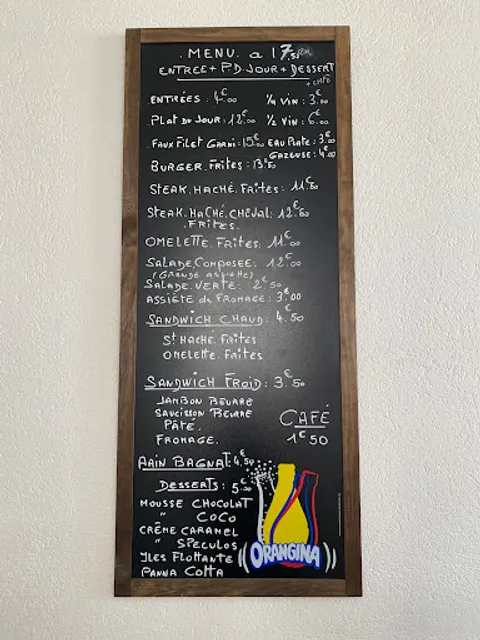 MENU. a 17€50
ENTREE + P.D. JOUR + DESSERT
+ CAFÉ
ENTRÉES : 4€00
1/4 VIN : 3€00
PLAT DU JOUR : 12€00
1/2 VIN : 6€00
FAUX FILET GARNI : 15€00
EAU PLATE : 3€00
GAZEUSE : 4€00
BURGER. FRITES : 13€50
STEAK. HACHÉ. FRITES : 11€50
STEAK. HACHÉ. CHEVAL : 12€50
. FRITES .
OMELETTE. FRITES : 11€00
SALADE COMPOSEE : 12€00
(GRANDE ASSIETTE)
SALADE. VERTE : 2€50
ASSIÉTE de FROMAGE : 3€00
SANDWICH CHAUD : 4€50
St HACHÉ. FRITES
OMELETTE. FRITES
SANDWICH FROID : 3€50
JAMBON BEURRE
SAUCISSON BEURRE
PÂTÉ.
FROMAGE.
CAFÉ
1€50
PAIN BAGNAT : 4€50
DESSERTS : 5€50
MOUSSE CHOCOLAT
" COCO
CRÊME CARAMEL
" SPECULOS
ILES FLOTTANTE
PANNA COTTA
ORANGINA